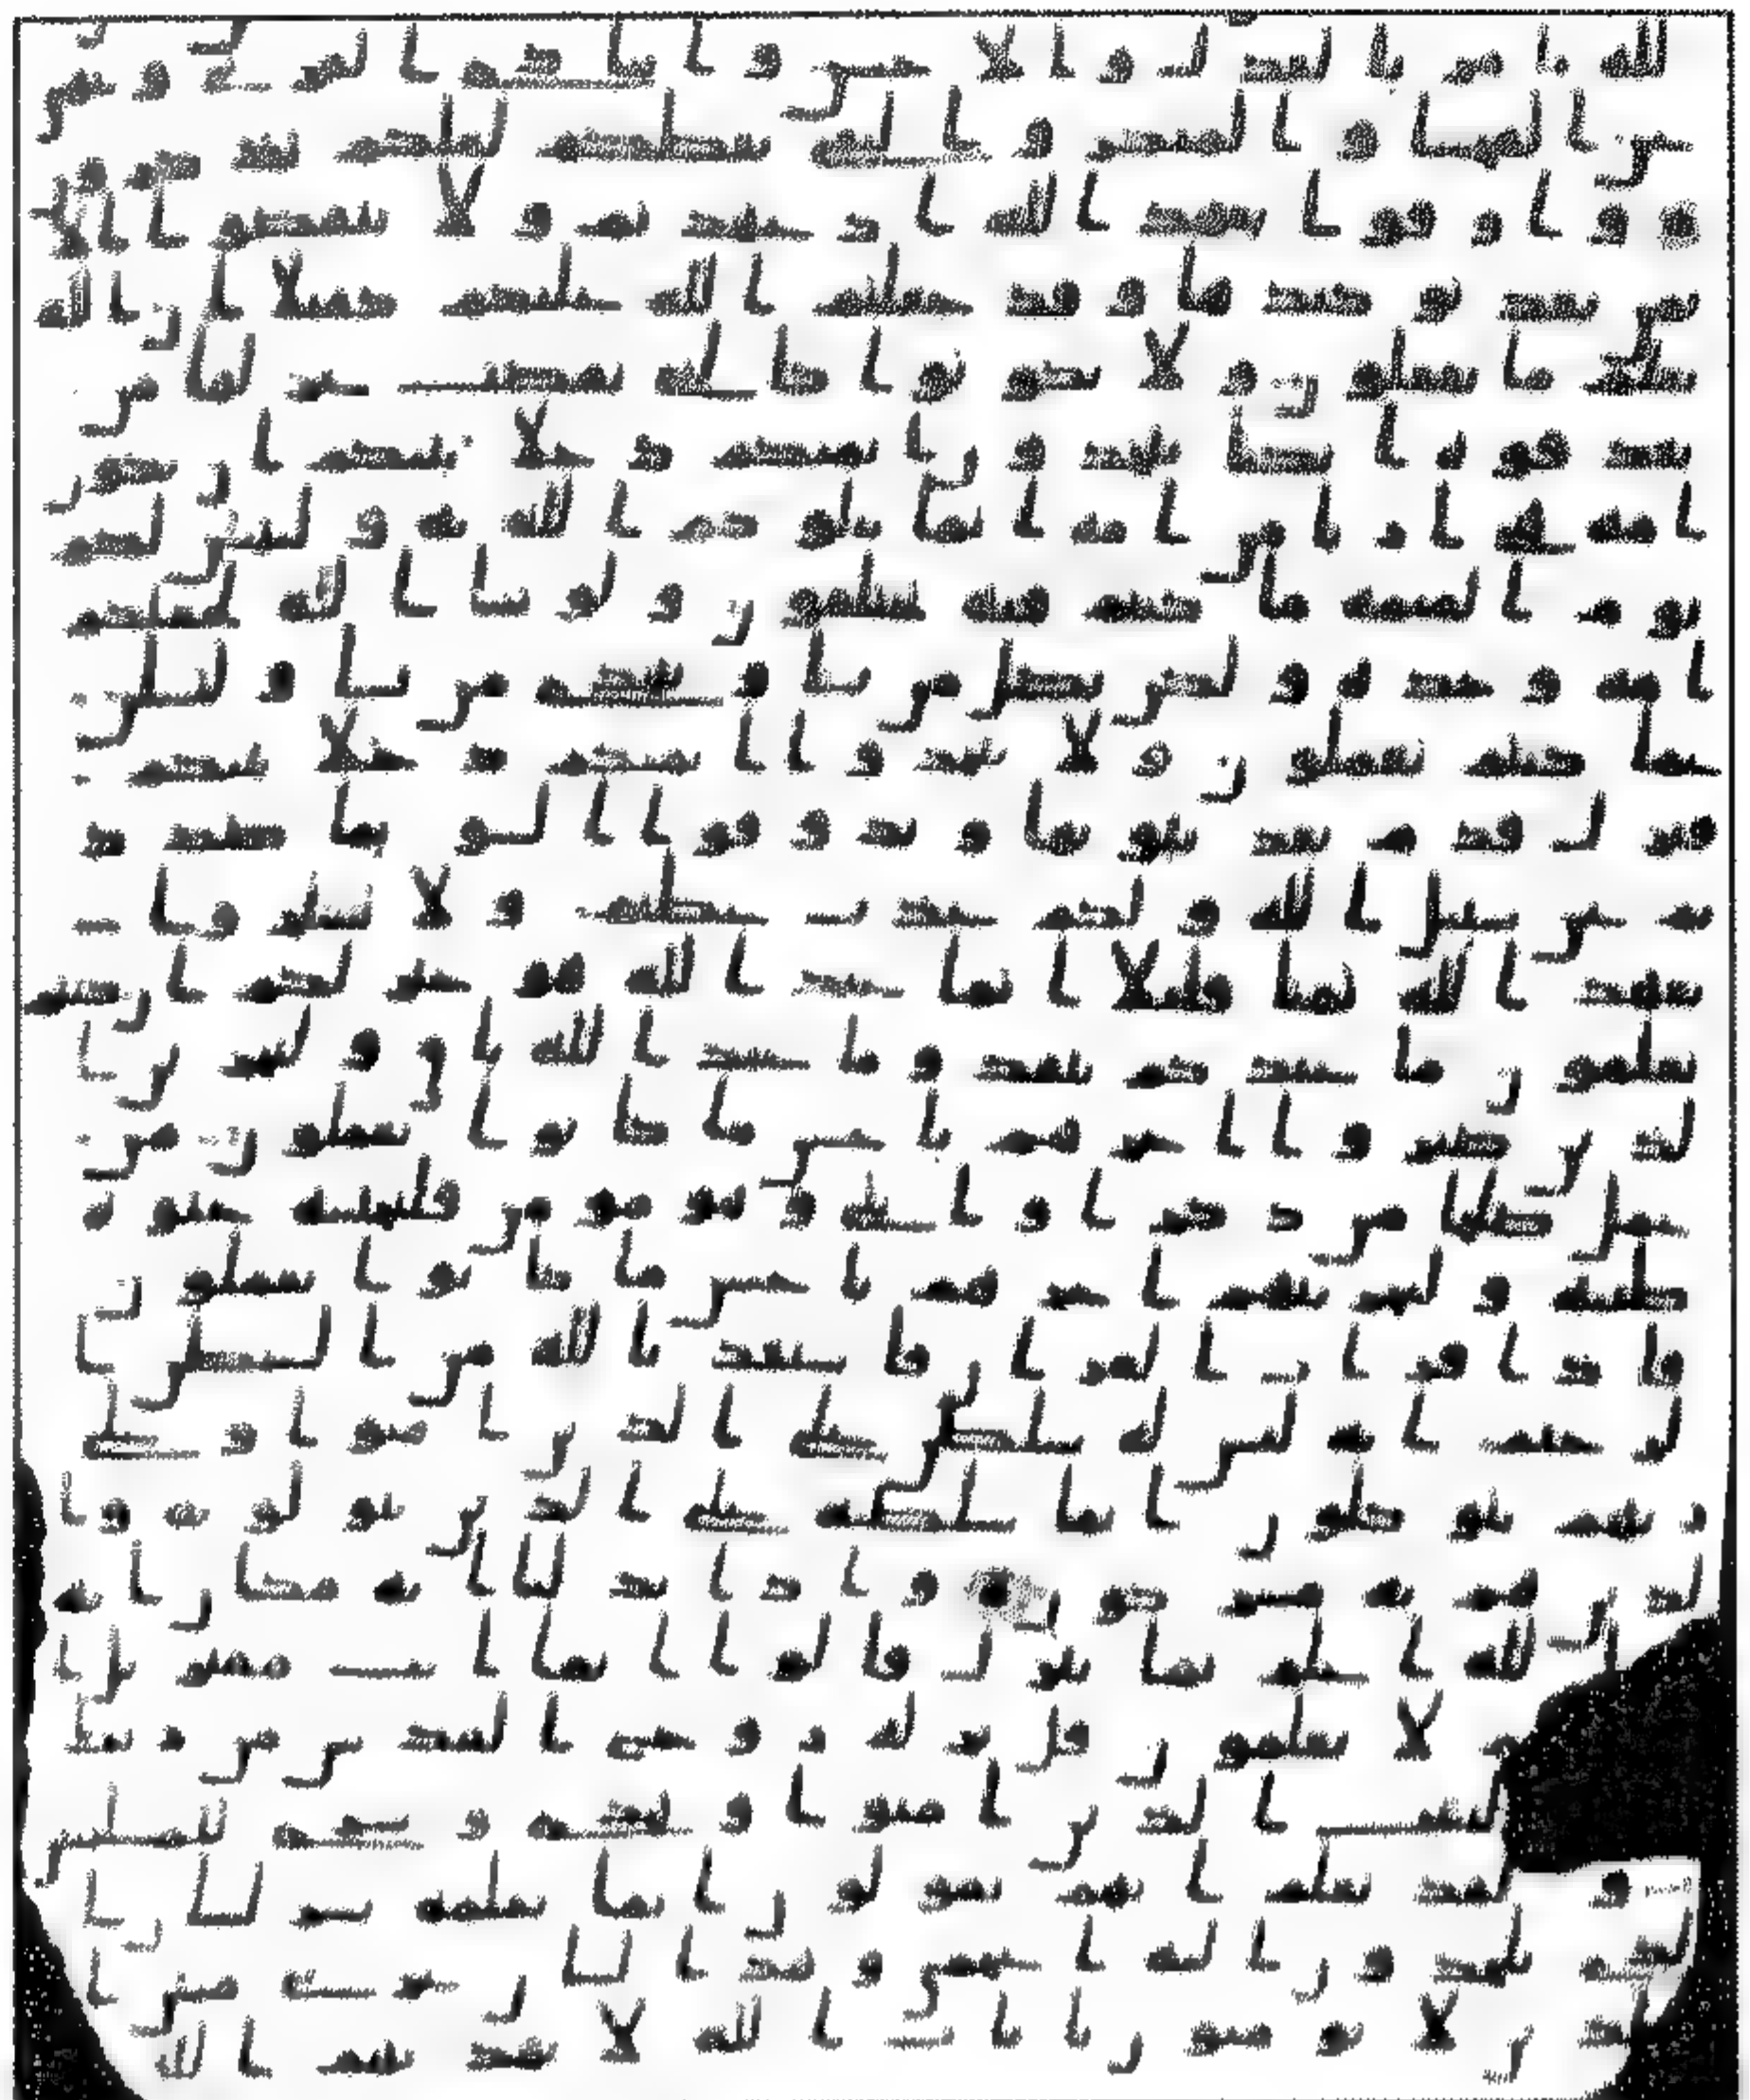 الله يامر بالعدل والاحسن وايتاى ذى القربى وينهى
عن الفحشا والمنكر والبغى يعظكم لعلكم تذكر
ون واوفوا بعهد الله اذا عهدتم ولا تنقضوا الا
يمن بعد توكيدها وقد جعلتم الله عليكم كفيلا ان الله
يعلم ما تفعلون ولا تكونوا كالتى نقضت غزلها من
بعد قوه انكثا تتخذون ايمنكم دخلا بينكم ان تكون
امه هى اربى من امه انما يبلوكم الله به وليبينن لكم
يوم القيمه ما كنتم فيه تختلفون ولو شا الله لجعلكم
امه وحده ولكن يضل من يشا ويهدى من يشا ولتسلن
عما كنتم تعملون ولا تتخذوا ايمنكم دخلا بينكم
فتزل قدم بعد ثبوتها وتذوقوا السو بما صددتم
عن سبيل الله ولكم عذب عظيم ولا تشتروا
بعهد الله ثمنا قليلا انما عند الله هو خير لكم ان كنتم
تعلمون ما عندكم ينفد وما عند الله باق ولنجزين ا
لذين صبروا اجرهم باحسن ما كانوا يعملون من
عمل صلحا من ذكر او انثى وهو مومن فلنحيينه حيوه
طيبه ولنجزينهم اجرهم باحسن ما كانوا يعملون
فاذا قرات القران فاستعذ بالله من الشيطن ا
لرجيم انه ليس له سلطن على الذين امنوا وعلى
ربهم يتوكلون انما سلطنه على الذين يتولونه وا
لذين هم به مشركون واذا بدلنا ايه مكان ايه
الله اعلم بما ينزل قالوا انما انت مفتر بل ا
هم لا يعلمون قل نزله روح القدس من ربك با
ليثبت الذين امنوا وهدى وبشرى للمسلمين
ولقد نعلم انهم يقولون انما يعلمه بشر لسان ا
لذى يلحدون اليه اعجمى وهذا لسان عربى مبين ا
لذين لا يومنون بايت الله لا يهديهم الله